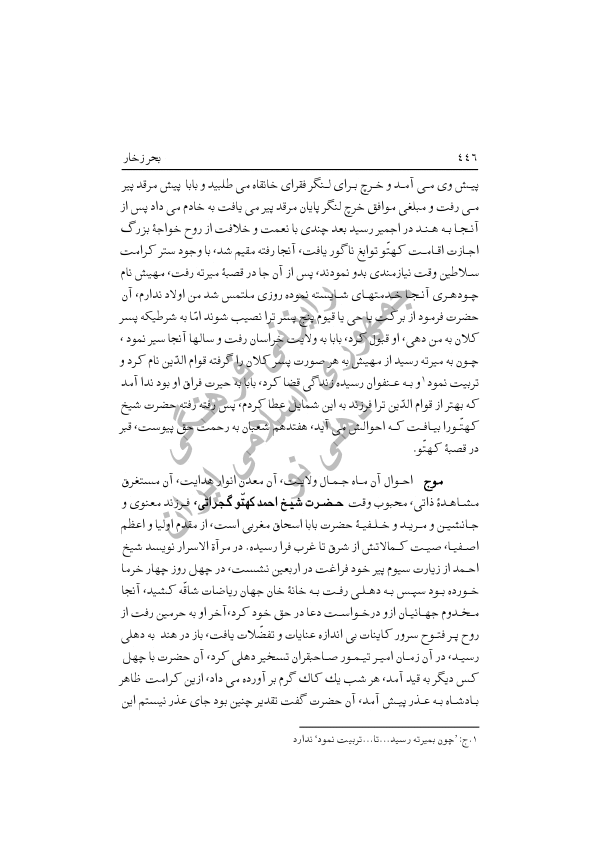 ٤٤٦ بحر زخار
پیش وی می آمد و خرچ برای لنگر فقرای خانقاه می طلبید و بابا پیش مرقد پیر
می رفت و مبلغی موافق خرچ لنگر پایان مرقد پیر می یافت به خادم می داد پس از
آنجا به هند در اجمیر رسید بعد چندی با نعمت و خلافت از روح خواجهٔ بزرگ
اجازت اقامت کهتّو توابع ناگور یافت، آنجا رفته مقیم شد، با وجود ستر کرامت
سلاطین وقت نیازمندی بدو نمودند، پس از آن جا در قصبهٔ میرته رفت، مهیش نام
چودهری آنجا خدمتهای شایسته نموده روزی ملتمس شد من اولاد ندارم، آن
حضرت فرمود از برکت یا حی یا قیوم پنج پسر ترا نصیب شوند امّا به شرطیکه پسر
کلان به من دهی، او قبول کرد، بابا به ولایت خراسان رفت و سالها آنجا سیر نمود ،
چون به میرته رسید از مهیش به هر صورت پسر کلان را گرفته قوام الدّین نام کرد و
تربیت نمود ۱ و به عنفوان رسیده زندگی قضا کرد، بابا به حیرت فراق او بود ندا آمد
که بهتر از قوام الدّین ترا فرزند به این شمایل عطا کردم، پس رفته رفته حضرت شیخ
کهتّورا بیافت که احوالش می آید، هفتدهم شعبان به رحمت حق پیوست، قبر
در قصبهٔ کهتّو.
موج احوال آن ماه جمال ولایت، آن معدن انوار هدایت، آن مستغرق
مشاهدهٔ ذاتی، محبوب وقت حضرت شیخ احمد کهتّو گجراتی، فرزند معنوی و
جانشین و مرید و خلفیهٔ حضرت بابا اسحاق مغربی است، از مقدم اولیا و اعظم
اصفیا، صیت کمالاتش از شرق تا غرب فرا رسیده. در مرآة الاسرار نویسد شیخ
احمد از زیارت سیوم پیر خود فراغت در اربعین نشست، در چهل روز چهار خرما
خورده بود سپس به دهلی رفت به خانهٔ خان جهان ریاضات شاقّه کشید، آنجا
مخدوم جهانیان ازو درخواست دعا در حق خود کرد، آخر او به حرمین رفت از
روح پر فتوح سرور کاینات بی اندازه عنایات و تفضّلات یافت، باز در هند به دهلی
رسید، در آن زمان امیر تیمور صاحبقران تسخیر دهلی کرد، آن حضرت با چهل
کس دیگر به قید آمد، هر شب یك کاك گرم بر آورده می داد، ازین کرامت ظاهر
بادشاه به عذر پیش آمد، آن حضرت گفت تقدیر چنین بود جای عذر نیستم این
۱.ج: ’چون بمیرته رسید...تا...تربیت نمود‘ ندارد